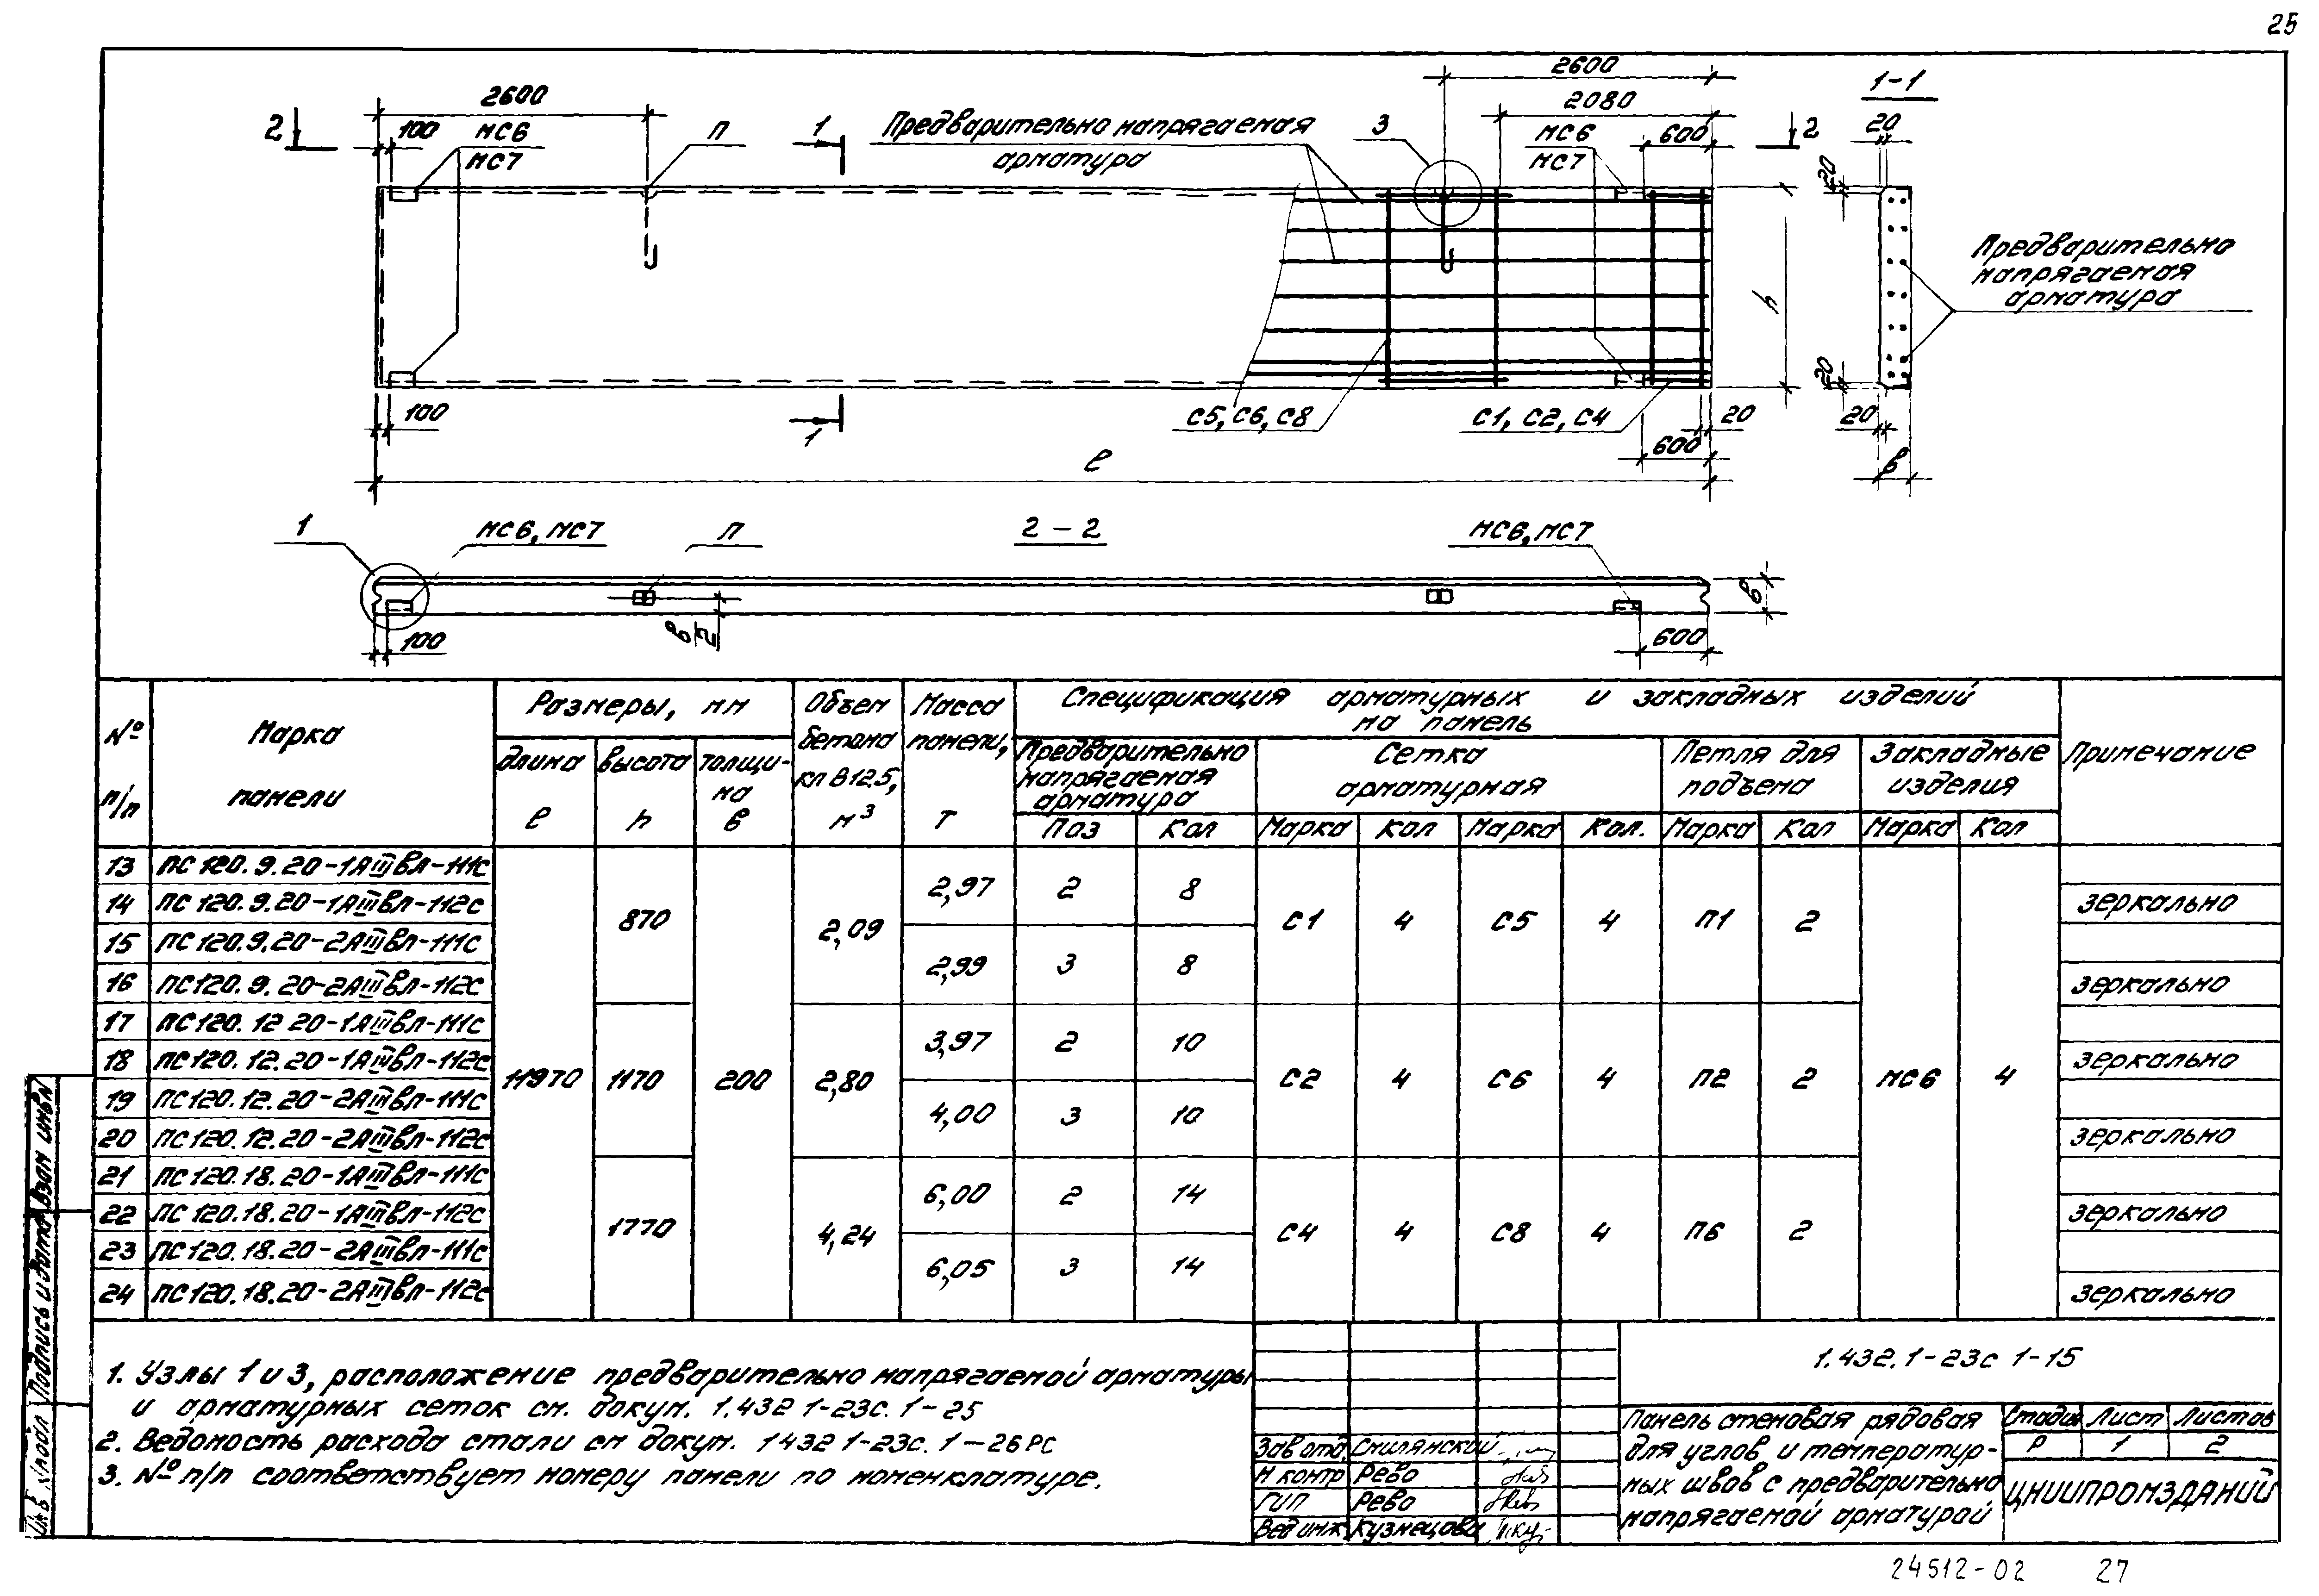 25
2600
2600
1-1
2080
2
100
МС6
МС7
П
1
Предварительно напрягаемая
арматура
3
МС6
МС7
600
2
20
20
h
Предварительно
напрягаемая
арматура
20
100
1
С5, С6, С8
С1, С2, С4
20
20
600
ℓ
в
1
МС6, МС7
П
2-2
МС6, МС7
в
100
в/2
600
№ п/п
Марка панели
Размеры, мм
Объем бетона кл В12.5, м³
Масса панели, Т
Спецификация арматурных и закладных изделий
на панель
Примечание
длина ℓ
высота h
толщи-на в
Предварительно напрягаемая арматура
Сетка арматурная
Петля для подъема
Закладные изделия
Поз Кол Марка Кол Марка Кол. Марка Кол Марка Кол
13 ПС120.9.20-1АIIIвл-111с 11970 870 200 2,09 2,97 2 8 С1 4 С5 4 П1 2 МС6 4
14 ПС120.9.20-1АIIIвл-112с зеркально
15 ПС120.9.20-2АIIIвл-111с 2,99 3 8
16 ПС120.9.20-2АIIIвл-112с зеркально
17 ПС120.12 20-1АIIIвл-111с 1170 2,80 3,97 2 10 С2 4 С6 4 П2 2
18 ПС120.12.20-1АIIIвл-112с зеркально
19 ПС120.12.20-2АIIIвл-111с 4,00 3 10
20 ПС120.12.20-2АIIIвл-112с зеркально
21 ПС120.18.20-1АIIIвл-111с 1770 4,24 6,00 2 14 С4 4 С8 4 П6 2
22 ПС120.18.20-1АIIIвл-112с зеркально
23 ПС120.18.20-2АIIIвл-111с 6,05 3 14
24 ПС120.18.20-2АIIIвл-112с зеркально
1. Узлы 1 и 3, расположение предварительно напрягаемой арматуры
и арматурных сеток см. докум. 1.432 1-23с. 1-25
2. Ведомость расхода стали см докум. 1432 1-23с. 1-26РС
3. № п/п соответствует номеру панели по номенклатуре.
1.432.1-23с 1-15
Зав отд. Смилянский
Н контр Рево
ГИП Рево
Вед инж Кузнецова
Панель стеновая рядовая
для углов и температур-
ных швов с предварительно
напрягаемой арматурой
Стадия Лист Листов
Р 1 2
ЦНИИПРОМЗДАНИЙ
Взам инв№
Подпись и дата
24512-02 27